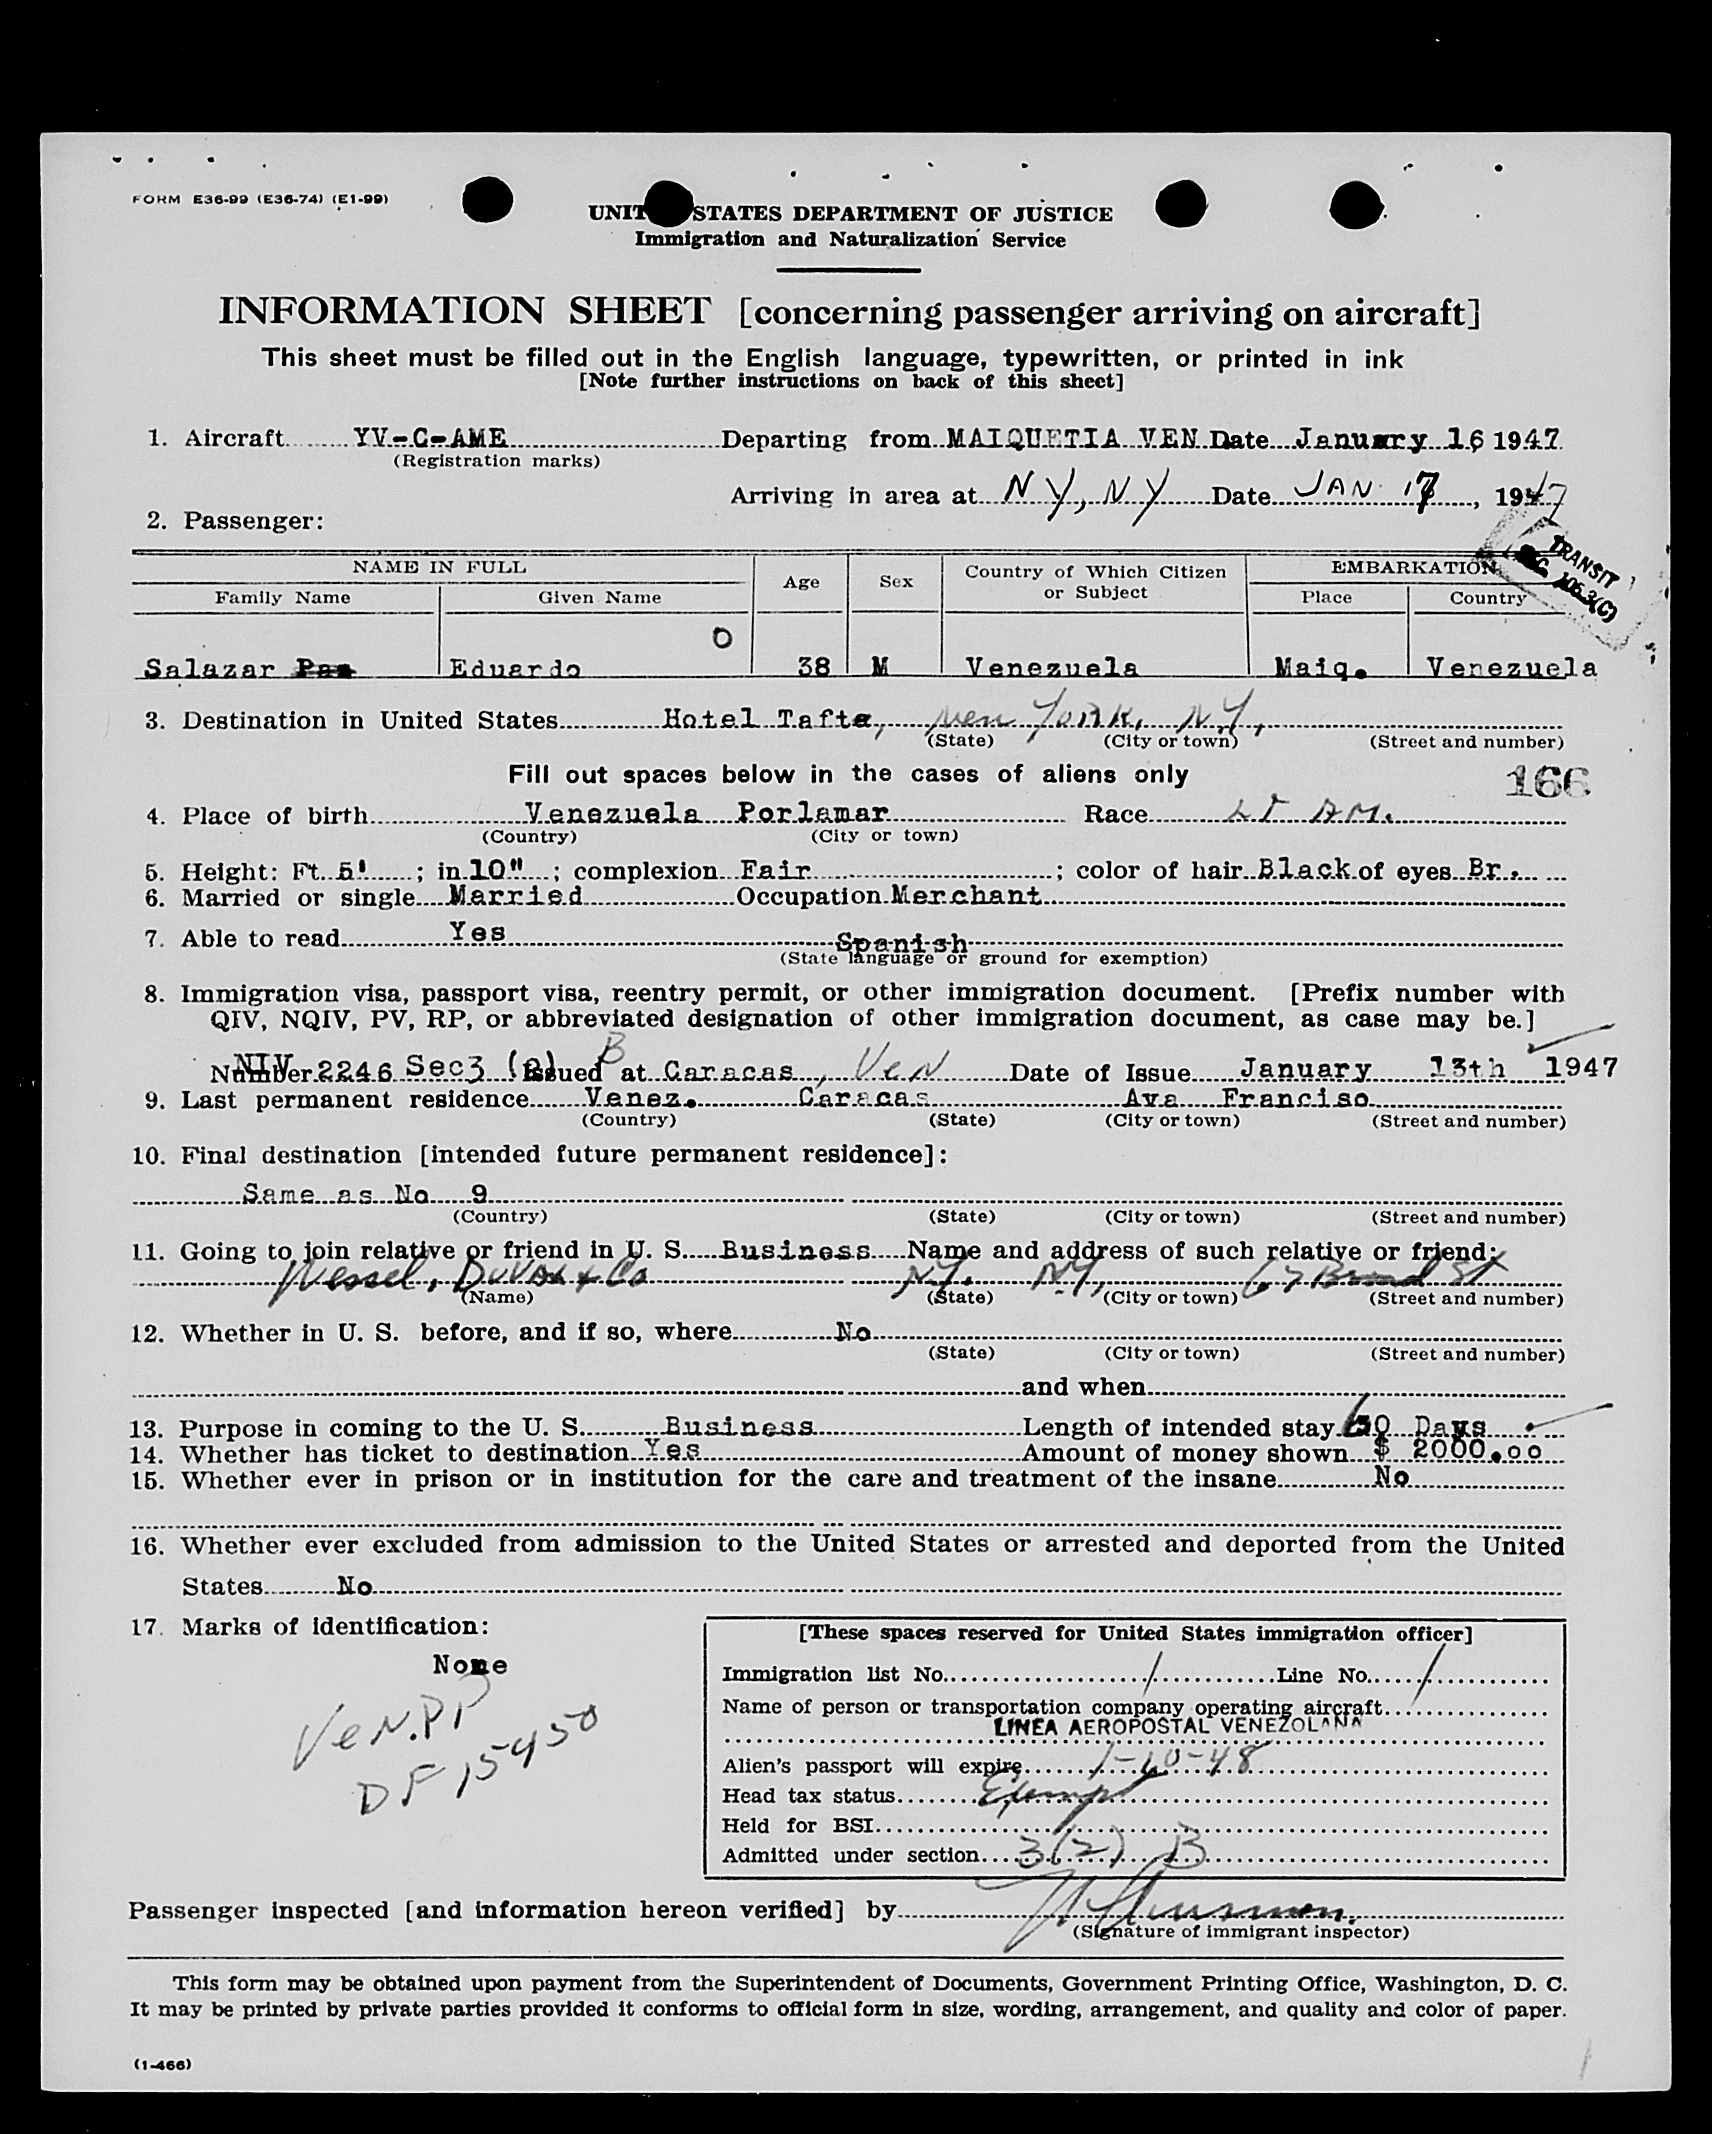 FORM E36-99 (E36-74) (E1-99)
UNIT STATES DEPARTMENT OF JUSTICE
Immigration and Naturalization Service
INFORMATION SHEET [concerning passenger arriving on aircraft]
This sheet must be filled out in the English language, typewritten, or printed in ink
[Note further instructions on back of this sheet]
1. Aircraft YV-C-AME Departing from MAIQUETIA VEN Date January 16 1947
(Registration marks)
Arriving in area at NY, NY Date JAN 17, 1947
2. Passenger:
TRANSIT
SEC 105.3(C)
NAME IN FULL Age Sex Country of Which Citizen or Subject EMBARKATION
Family Name Given Name Place Country
O
Salazar Eduardo 38 M Venezuela Maiq. Venezuela
3. Destination in United States Hotel Tafte, New York, N.Y,
(State) (City or town) (Street and number)
Fill out spaces below in the cases of aliens only 166
4. Place of birth Venezuela Porlamar Race LT AM.
(Country) (City or town)
5. Height: Ft. 5' ; in. 10" ; complexion Fair ; color of hair Black of eyes Br.
6. Married or single Married Occupation Merchant
7. Able to read Yes Spanish
(State language or ground for exemption)
8. Immigration visa, passport visa, reentry permit, or other immigration document. [Prefix number with
QIV, NQIV, PV, RP, or abbreviated designation of other immigration document, as case may be.]
Number NIV 2246 Sec3 (2) B Issued at Caracas, Ven Date of Issue January 13th 1947
9. Last permanent residence Venez. Caracas Ava Franciso
(Country) (State) (City or town) (Street and number)
10. Final destination [intended future permanent residence]:
Same as No 9
(Country) (State) (City or town) (Street and number)
11. Going to join relative or friend in U. S. Business Name and address of such relative or friend:
Wessel, DuVal & Co N.Y. N.Y, 67 Broad St
(Name) (State) (City or town) (Street and number)
12. Whether in U. S. before, and if so, where No
(State) (City or town) (Street and number)
and when
13. Purpose in coming to the U. S. Business Length of intended stay 60 Days
14. Whether has ticket to destination Yes Amount of money shown $ 2000.oo
15. Whether ever in prison or in institution for the care and treatment of the insane No
16. Whether ever excluded from admission to the United States or arrested and deported from the United
States No
17. Marks of identification:
None
Ven. PP
DF 15450
[These spaces reserved for United States immigration officer]
Immigration list No. 1 Line No. 1
Name of person or transportation company operating aircraft
LINEA AEROPOSTAL VENEZOLANA
Alien's passport will expire 1-10-48
Head tax status Exempt
Held for BSI
Admitted under section 3(2) B
Passenger inspected [and information hereon verified] by
(Signature of immigrant inspector)
This form may be obtained upon payment from the Superintendent of Documents, Government Printing Office, Washington, D. C.
It may be printed by private parties provided it conforms to official form in size, wording, arrangement, and quality and color of paper.
(1-466)
1